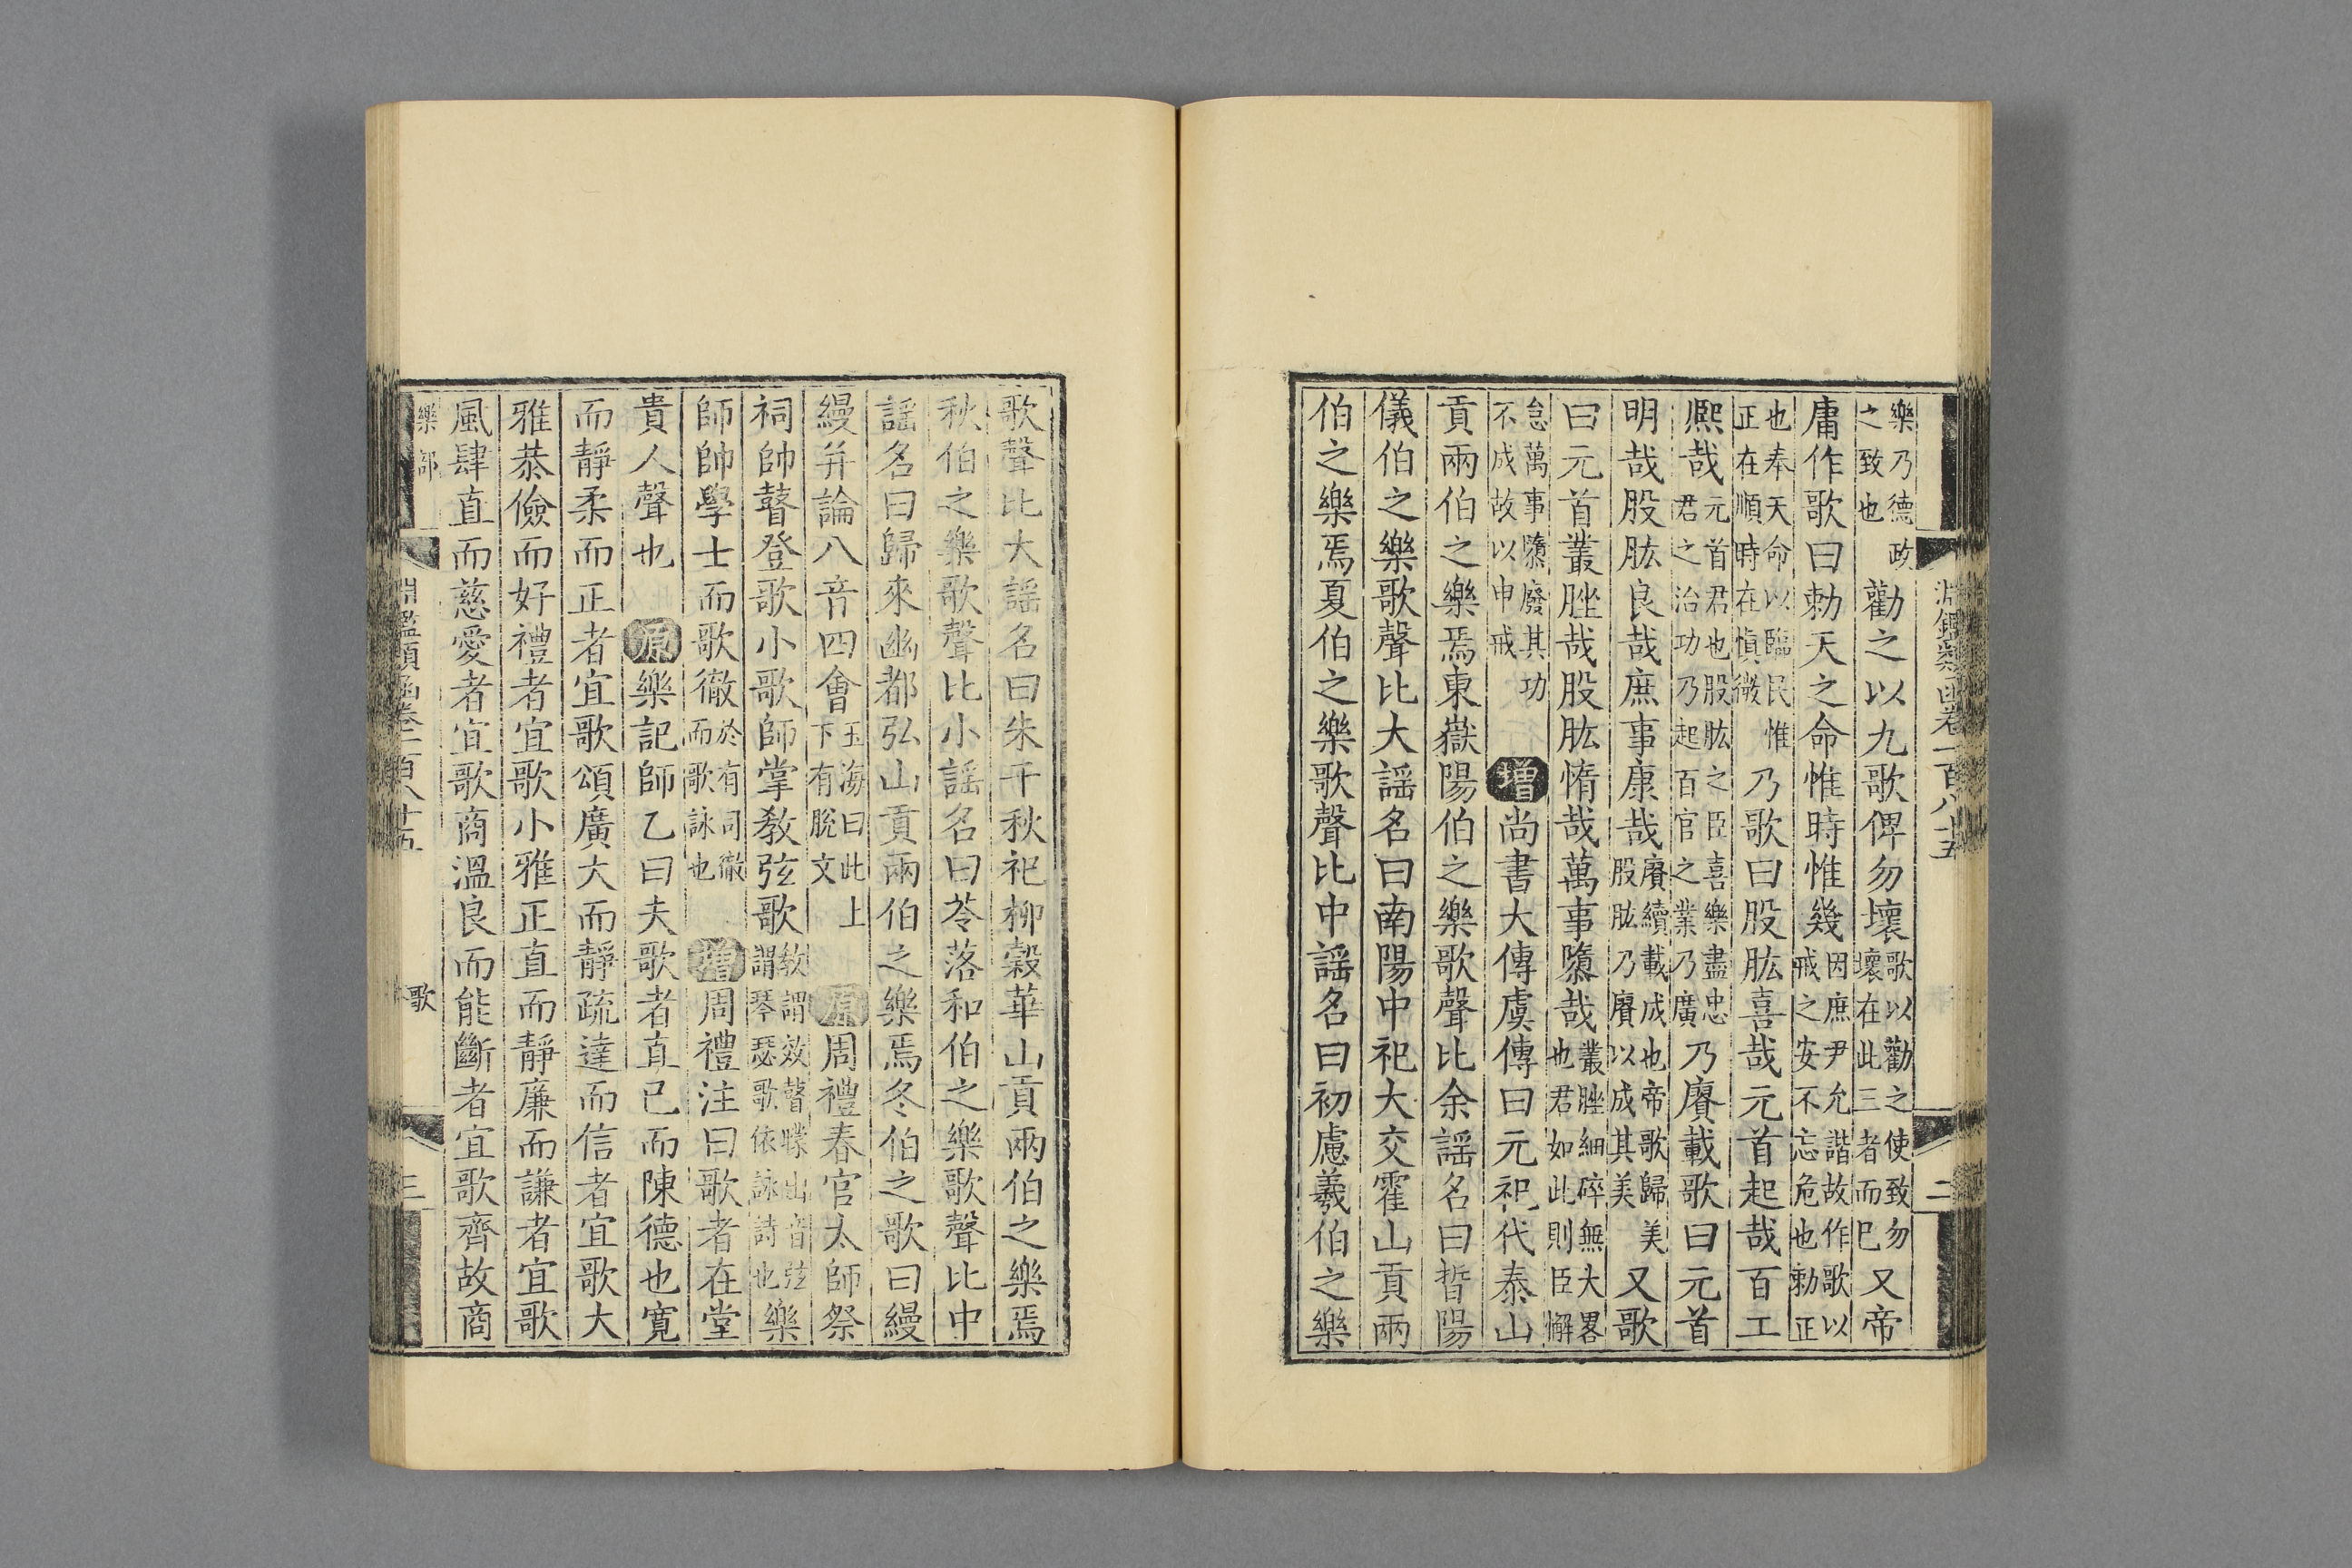 樂乃德政之致也勸之以九歌俾勿壞歌以勸之使致勿壞在此三者而已又帝
庸作歌曰勅天之命惟時惟幾因庶尹允諧故作歌以戒之安不忘危也勅正
也奉天命以臨民惟正在順時在慎微乃歌曰股肱喜哉元首起哉百工
熈哉元首君也股肱之臣喜樂盡忠君之治功乃起百官之業乃廣乃賡載歌曰元首
明哉股肱良哉庶事康哉賡續載成也帝歌歸美股肱乃賡以成其美又歌
曰元首叢脞哉股肱惰哉萬事隳哉叢脞細碎無大畧也君如此則臣懈
怠萬事隳廢其功不成故以申戒增尚書大傳虞傳曰元祀代泰山
貢兩伯之樂焉東嶽陽伯之樂歌聲比余謡名曰晢陽
儀伯之樂歌聲比大謡名曰南陽中祀大交霍山貢兩
伯之樂焉夏伯之樂歌聲比中謡名曰初慮羲伯之樂
淵鑑類函卷一百八十五
二
歌聲比大謡名曰朱干秋祀柳榖華山貢兩伯之樂焉
秋伯之樂歌聲比小謡名曰苓落和伯之樂歌聲比中
謡名曰歸來幽都弘山貢兩伯之樂焉冬伯之歌曰縵
縵并論八音四會玉海曰此上下有脫文原周禮春官太師祭
祠帥瞽登歌小歌師掌敎弦歌敎謂效瞽矇出音弦謂琴瑟歌依詠詩也樂
師帥學士而歌徹於有司徹而歌詠也增周禮注曰歌者在堂
貴人聲也原樂記師乙曰夫歌者直已而陳德也寛
而靜柔而正者宜歌頌廣大而靜疏達而信者宜歌大
雅恭儉而好禮者宜歌小雅正直而靜廉而謙者宜歌
風肆直而慈愛者宜歌商溫良而能斷者宜歌齊故商
樂部
歌
三